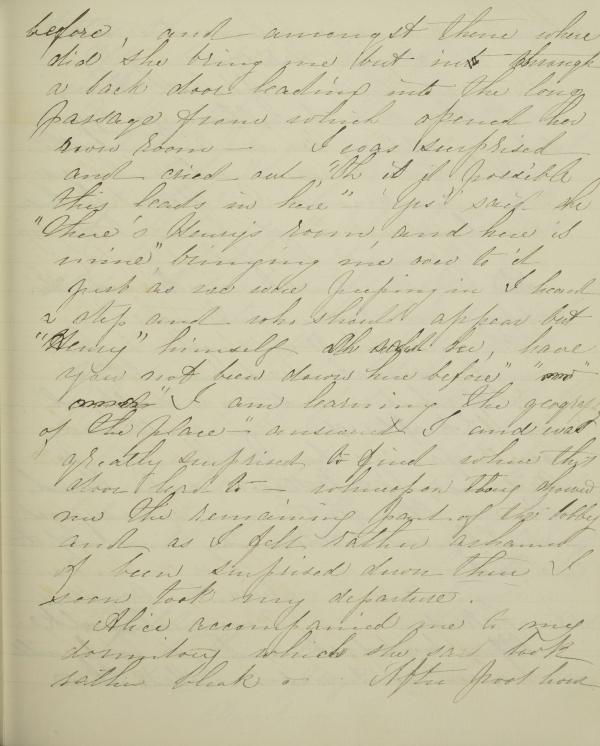 before, and amongst them where
did she bring me but into through
a back door leading into the long
passage from which opened her
own room — I was surprised
and cried out "Oh is it possible
this leads in here" "Yes" said she
"there's Henry's room and here is
mine" bringing me over to it
just as we were peeping in I heard
a step and who should appear but
"Henry" himself Oh said he, have
you not been down here before" "no"
I am learning the geography
of the place" answered I and was
greatly surprised to find where this
door led to — whereupon they showed
me the remaining part of the lobby
and as I felt rather ashamed
of been surprised down there I
soon took my departure.
Alice accompanied me to my
dormitory which she said took
rather bleak After